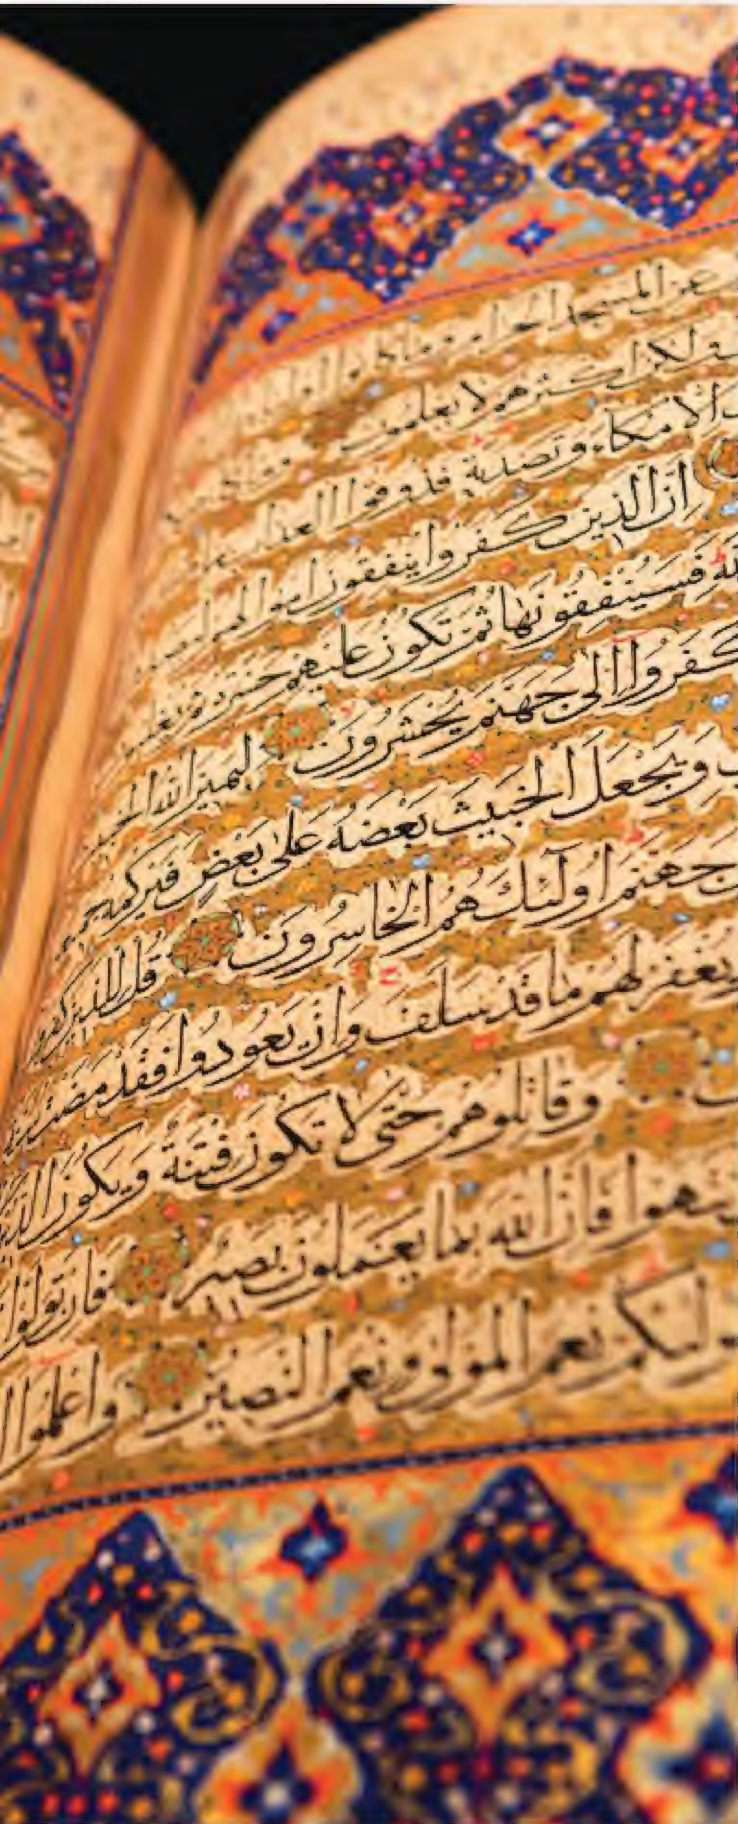 عن المسجد الحرام وما كانوا
ولكن اكثرهم لا يعلمون
الا مكاء وتصدية فذوقوا العذاب
ان الذين كفروا ينفقون اموالهم
فَسَيُنْفِقُونَهَا ثُمَّ تَكُونُ عَلَيْهِمْ حَسْرَةً ثم يغلبون
كَفَرُوا اِلىٰ جَهَنَّمَ يُحْشَرُونَ ليميز الله الخبيث
وَيَجْعَلَ الْخَبِيثَ بَعْضَهُ عَلىٰ بَعْضٍ فَيَرْكُمَهُ
جَهَنَّمَ اُولٰئِكَ هُمُ الْخَاسِرُونَ قل للذين كفروا
يُغْفَرْ لَهُمْ مَا قَدْ سَلَفَ وَاِنْ يَعُودُوا فَقَدْ مَضَتْ
وَقَاتِلُوهُمْ حَتّىٰ لَا تَكُونَ فِتْنَةٌ وَيَكُونَ الدِّينُ
انتهوا فَاِنَّ الله بما يعملون بصير فان تولوا
مولٰيكم نعم المولى ونعم النصير واعلموا